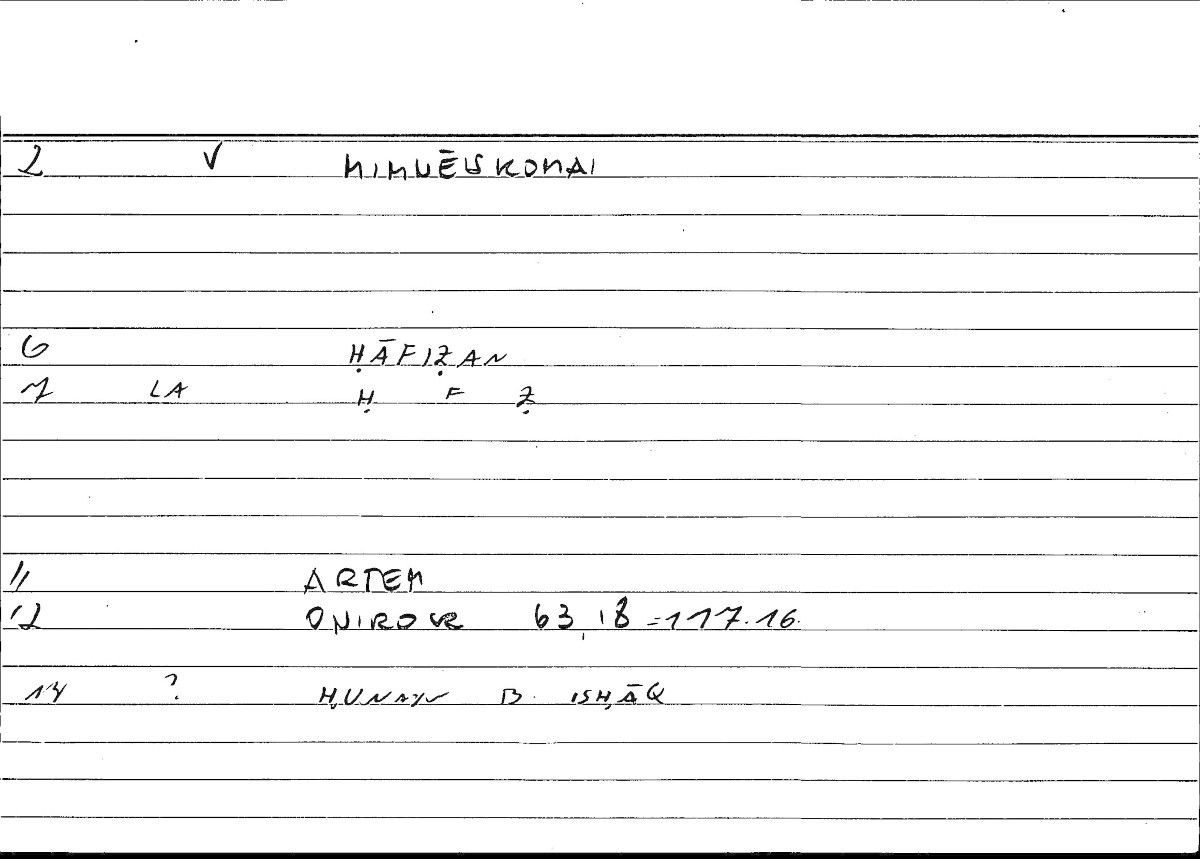 2 V MIMNĒISKOMAI
6 ḤĀFIẒAN
7 LA Ḥ F Ẓ
11 ARTEM
12 ONIROCR 63,18 = 117.16.
14 ? ḤUNAYN B. ISḤĀQ